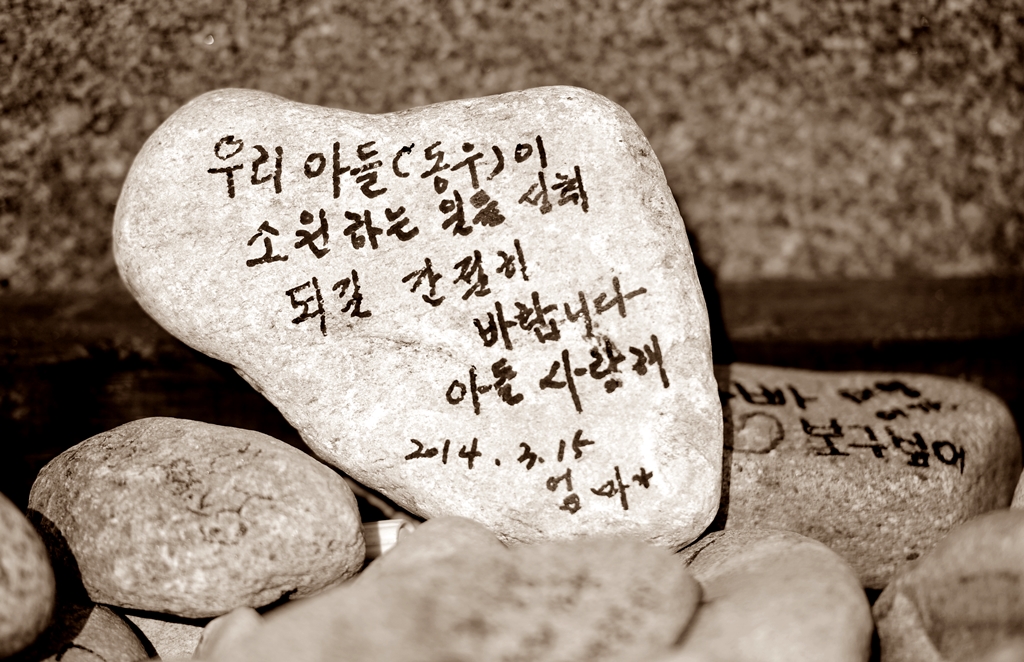 우리 아들(동우)이
소원하는 일들 성취
되길 간절히
바랍니다
아들 사랑해
2014. 3.15
엄마가